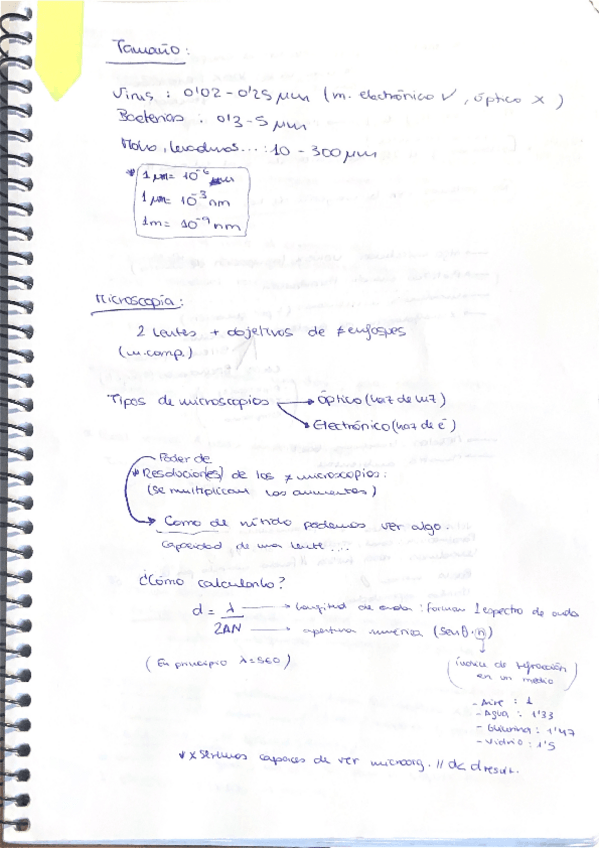 Tamaño:
Virus: 0'02 - 0'25 μm (m. electrónico ✓, óptico x)
Bacterias: 0'3 - 5 μm
Moho, levaduras...: 10 - 300 μm
* 1 μm = 10⁻⁶
1 μm = 10⁻³ nm
1m = 10⁻⁹ nm
Microscopía:
2 lentes + objetivos de ≠ enfoques
(m. comp.)
Tipos de microscopios → óptico (haz de luz)
→ Electrónico (haz de e⁻)
Poder de
* Resolucion(es) de los ≠ microscopios:
(se multiplican los aumentos)
→ Como de nítido podemos ver algo.
Capacidad de una lente...
¿Cómo calcularlo?
d = λ / 2AN
λ → longitud de onda: forman 1 espectro de onda
2AN → apertura numérica (senθ · n)
(En principio λ = 560)
(índice de refracción
en un medio)
- Aire: 1
- Agua: 1'33
- Glicerina: 1'47
- Vidrio: 1'5
capaces de ver microorg. // d< d result.